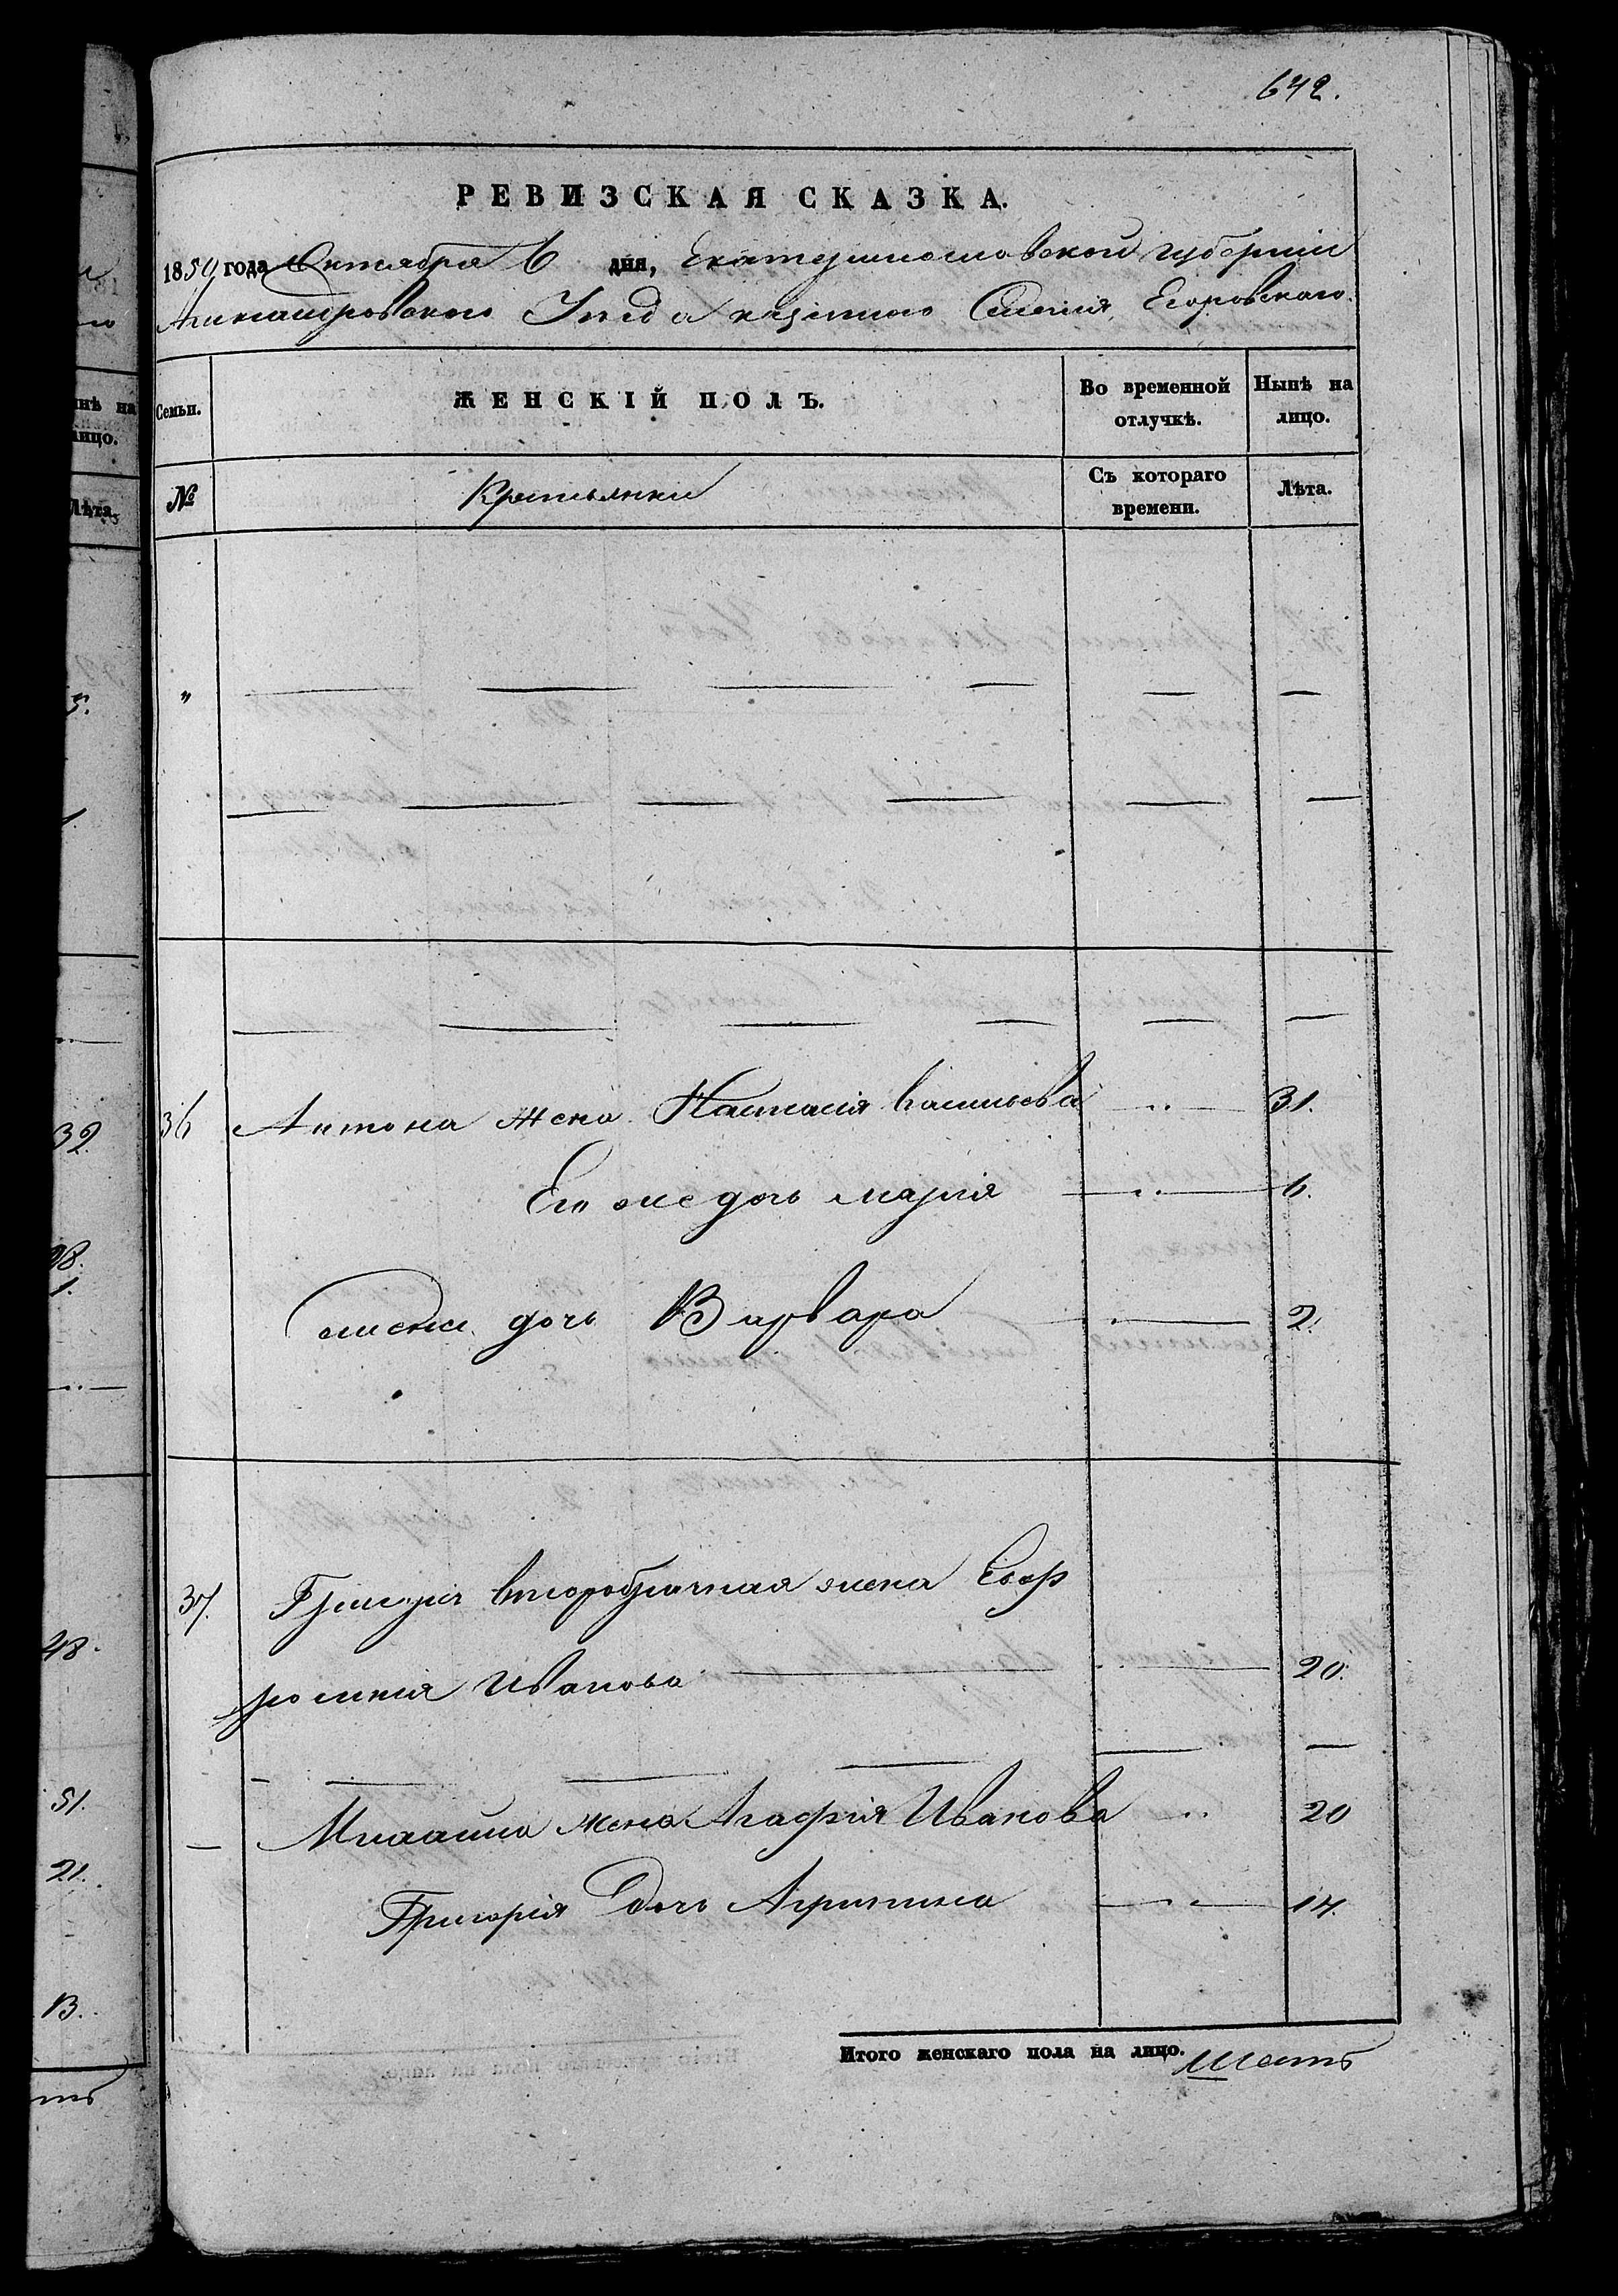 642.
РЕВИЗСКАЯ СКАЗКА.
1859 года Октября 6 дня, Екатеринославской губернии
Александровского Уезда казенного Селения Егоровского.
Семьи. ЖЕНСКІЙ ПОЛЪ. Во временной отлучкѣ. Нынѣ на лицо.
№ Крестьянки Съ котораго времени. Лѣта.
"
36 Антона жена Настасія васильева 31.
Его же дочь марія 6.
дочь Варвара 2.
37. Григорія второбрачная жена Евф
росинія Иванова 20.
Михаила жена Агафія Иванова 20
Григорія дочь Агрипина 14.
Итого женскаго пола на лицо. шесть
нѣ на
лицо.
Лѣта.
5.
1.
32.
38.
1.
48.
51.
21.
13.